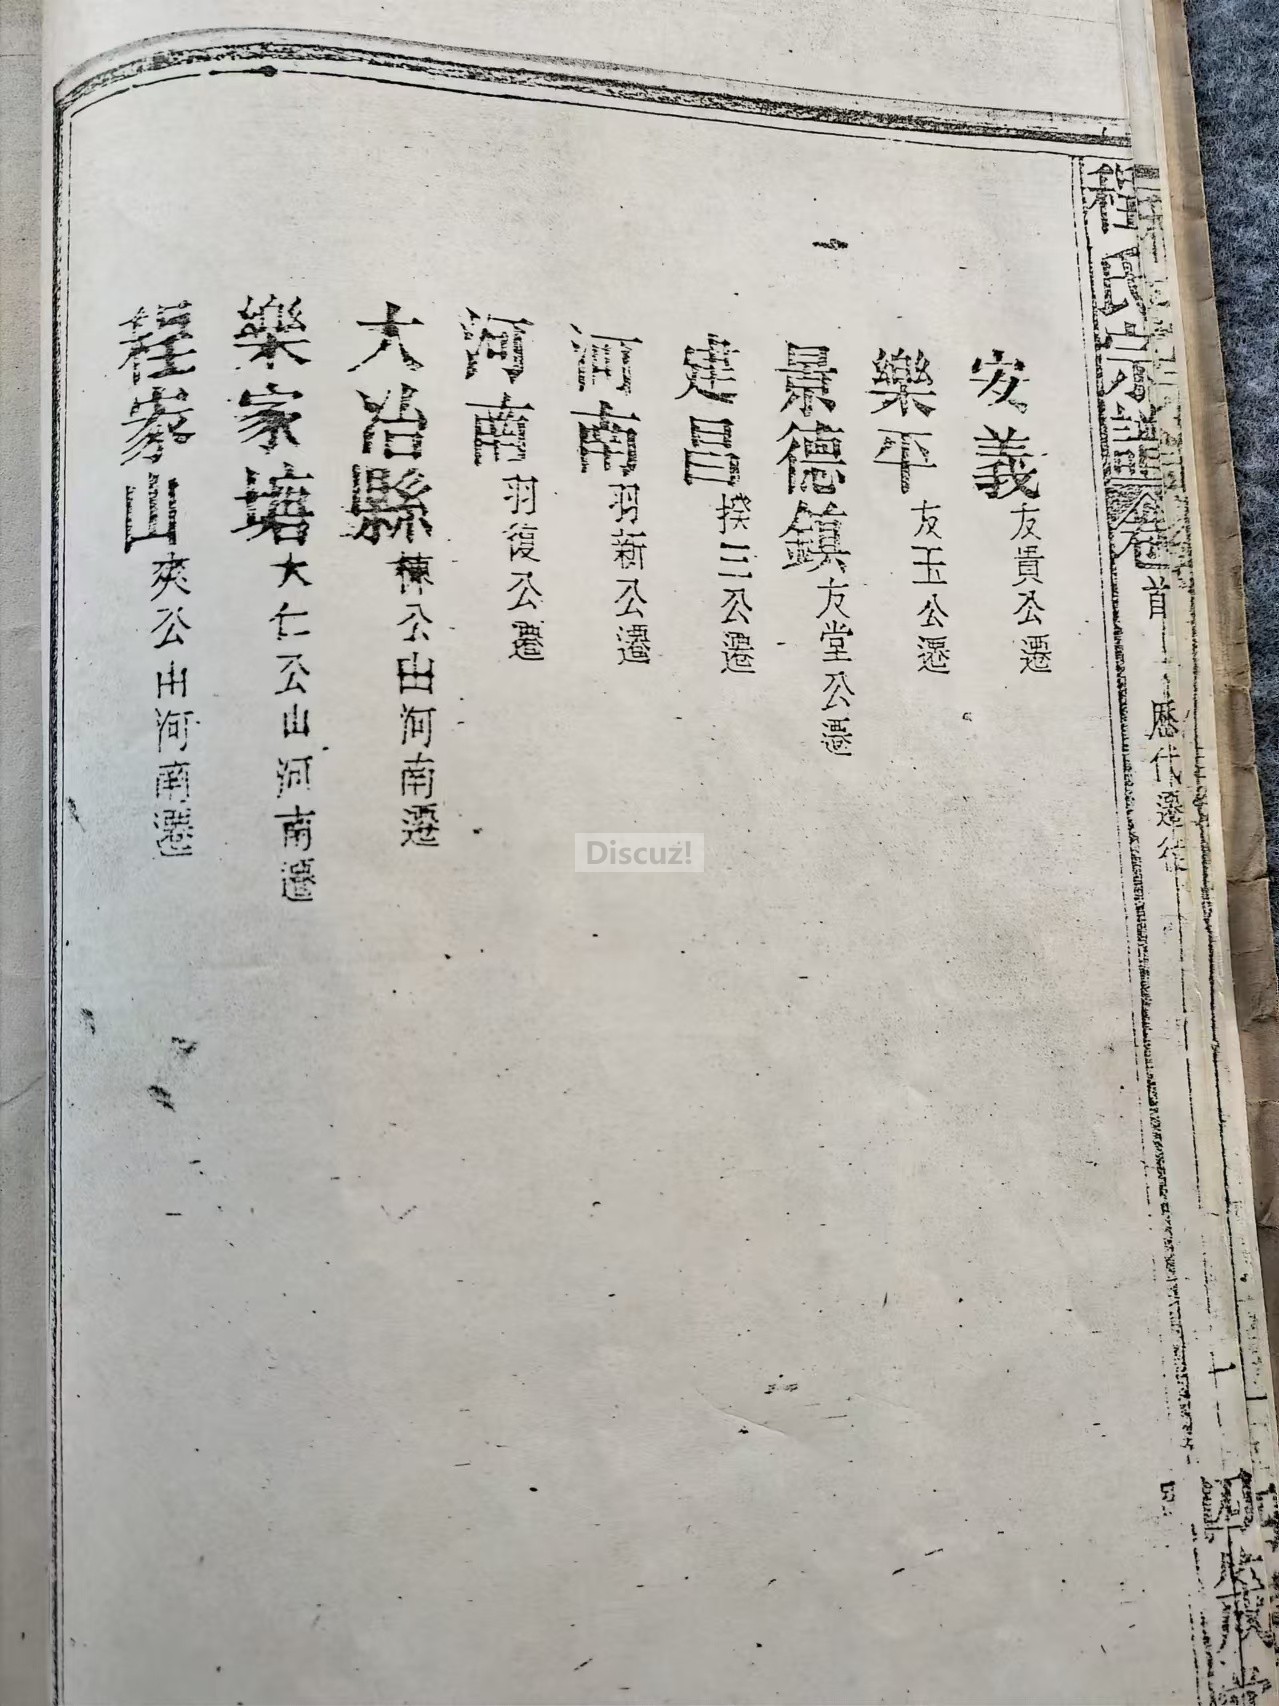 程氏宗譜
卷首
歷代遷徙
安義 友貴公遷
樂平 友玉公遷
景德鎮 友堂公遷
建昌 揆三公遷
河南 羽新公遷
河南 羽復公遷
大冶縣 棟公由河南遷
樂家塘 大仁公由河南遷
程家山 爽公由河南遷
Discuz!